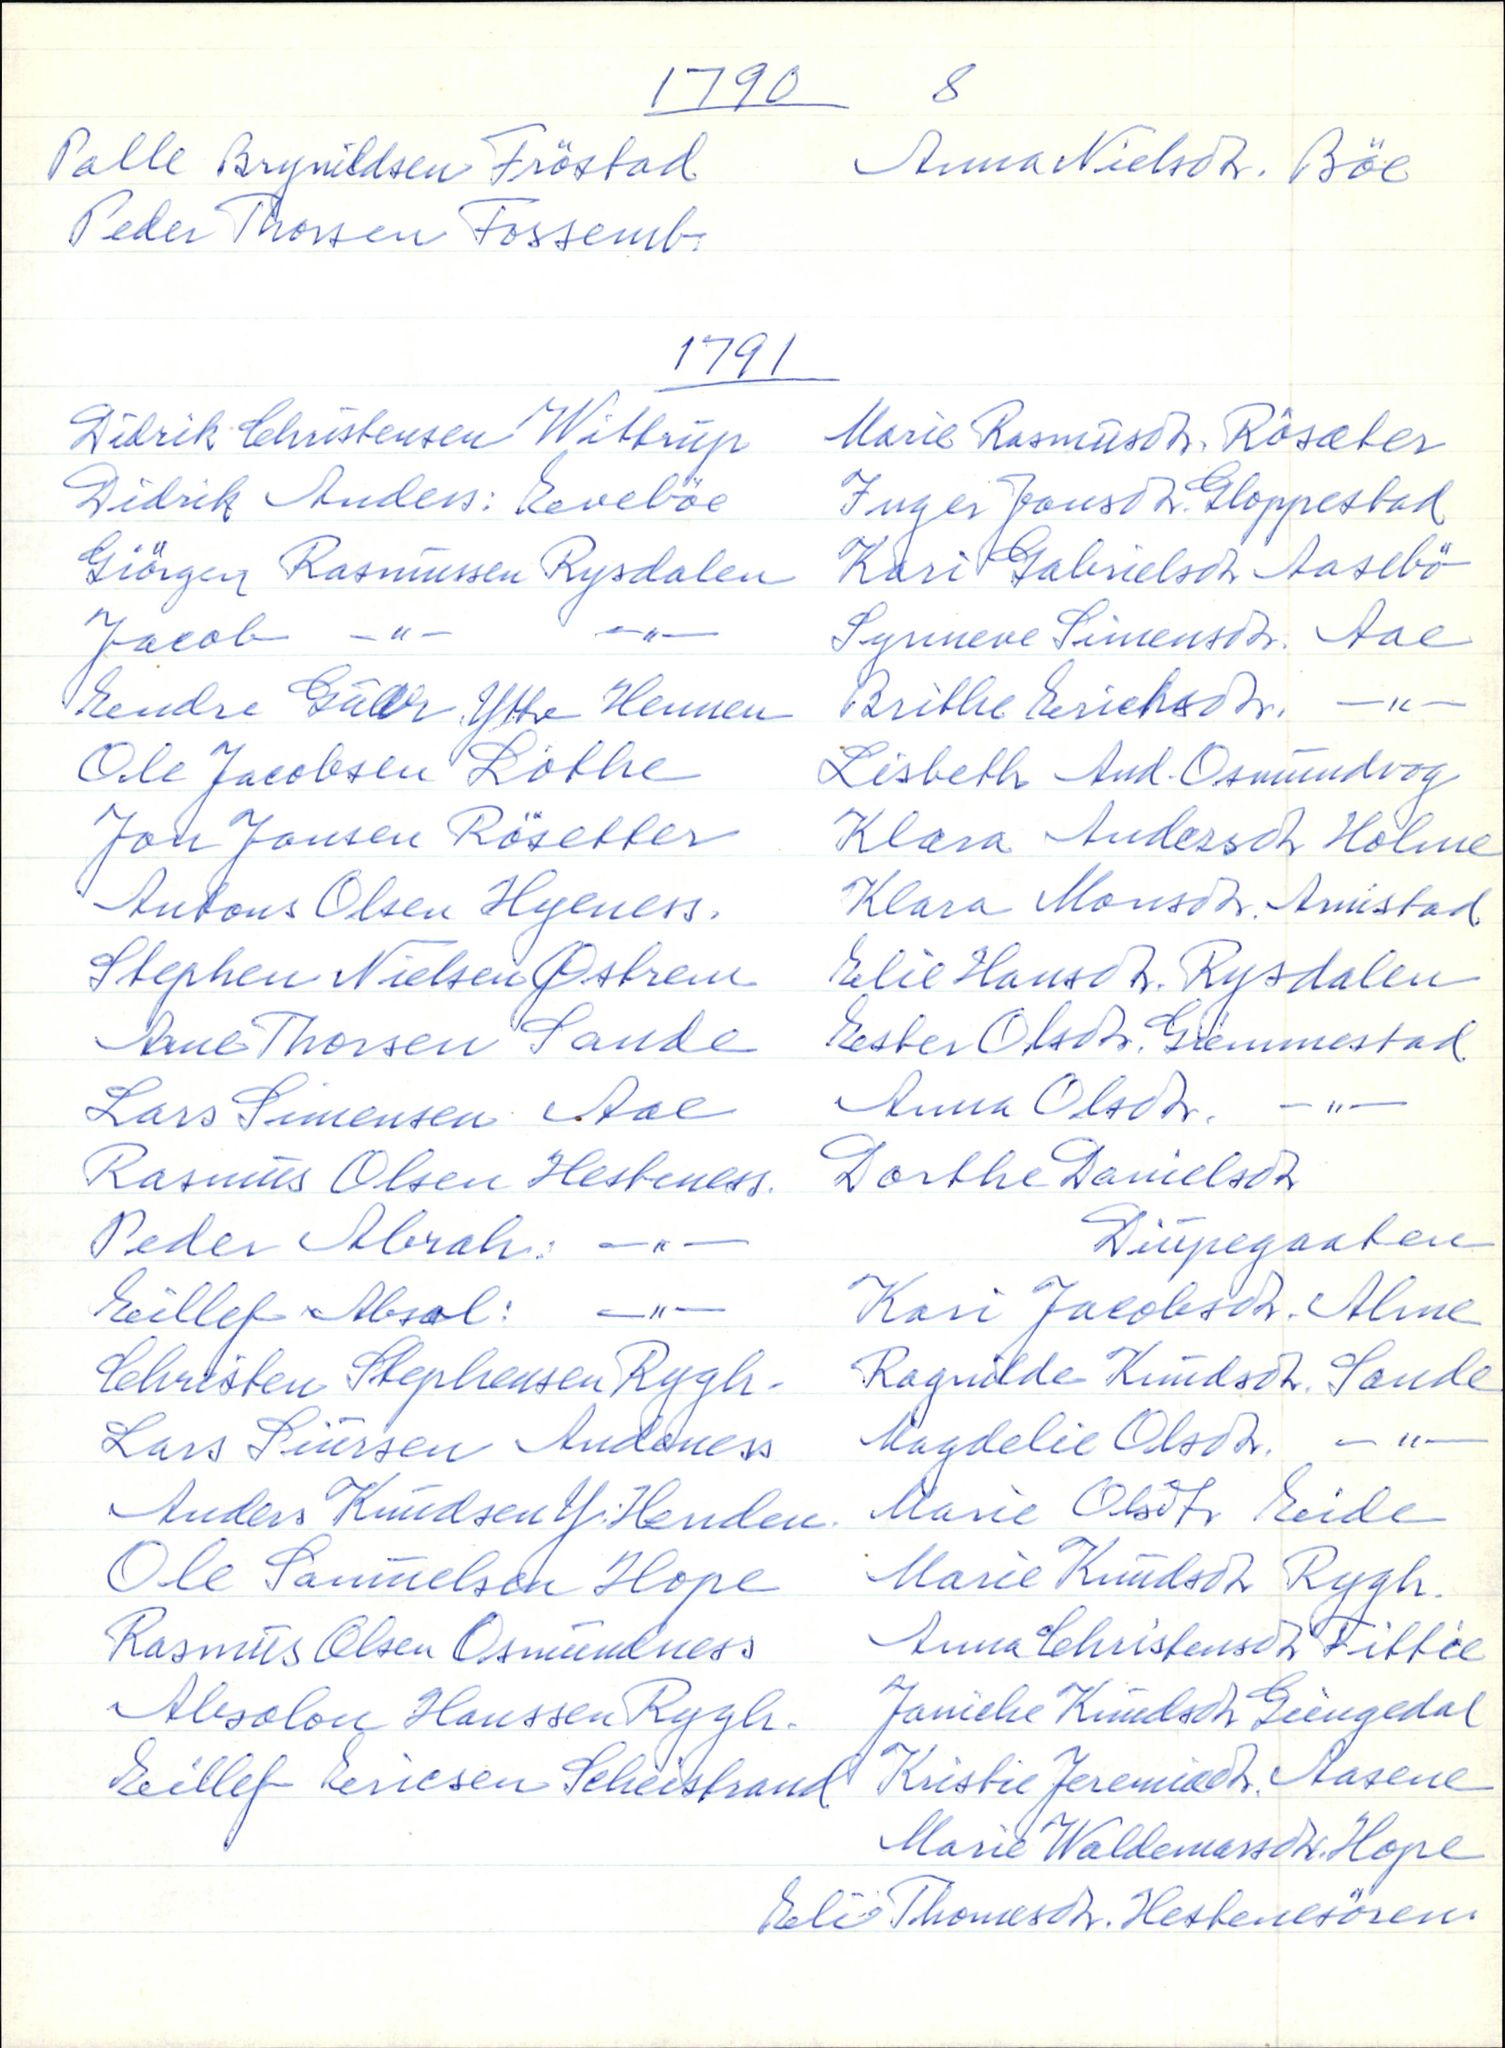 1790 8
Palle Brynildsen Fröstad Anna Nielsdtr. Böe
Peder Thorsen Fossemb.
1791
Didrik Christensen Wittrup Marie Rasmusdtr. Rösæter
Didrik Anders: Eevebøe Inger Jonsdtr. Gloppestad
Giörgen Rasmussen Rysdalen Kari Gabrielsdtr Aasebö
Jacob -"- -"- Synneve Simensdtr. Aae
Eendre Yttre Hennen Brithe Eerichsdtr. -"-
Ole Jacobsen Löthe Lisbeth And. Osmundvog
Jon Jonsen Rösetter Klara Andersdtr Holme
Antons Olsen Hyeness. Klara Monsdtr. Amistad
Stephen Nielsen Østrem Elie Hansdtr. Rysdalen
Arne Thorsen Sande Eester Olsdtr. Giemmestad
Lars Simensen Aae Anna Olsdtr. -"-
Rasmus Olsen Hesteness. Dorthe Danielsdtr
Peder Abrah: -"- Diupegaaten
Eillef Absol: -"- Kari Jacobsdtr. Alme
Christen Stephensen Rygh. Ragnilde Knudsdtr. Sande
Lars Siursen Andeness Magdelie Olsdtr. -"-
Anders Knudsen Y. Henden. Marie Olsdtr Eeide
Ole Samuelsen Hope Marie Knudsdtr Rygh.
Rasmus Olsen Osmundness Anna Christensdtr Fittie
Absolon Hanssen Rygh. Janiche Knudsdtr Giengedal
Eillef Eericsen Scheistrand Kristie Jeremiadtr. Aasene
Marie Waldemarsdtr. Hope
Eeli Thomesdtr. Hestenesören.